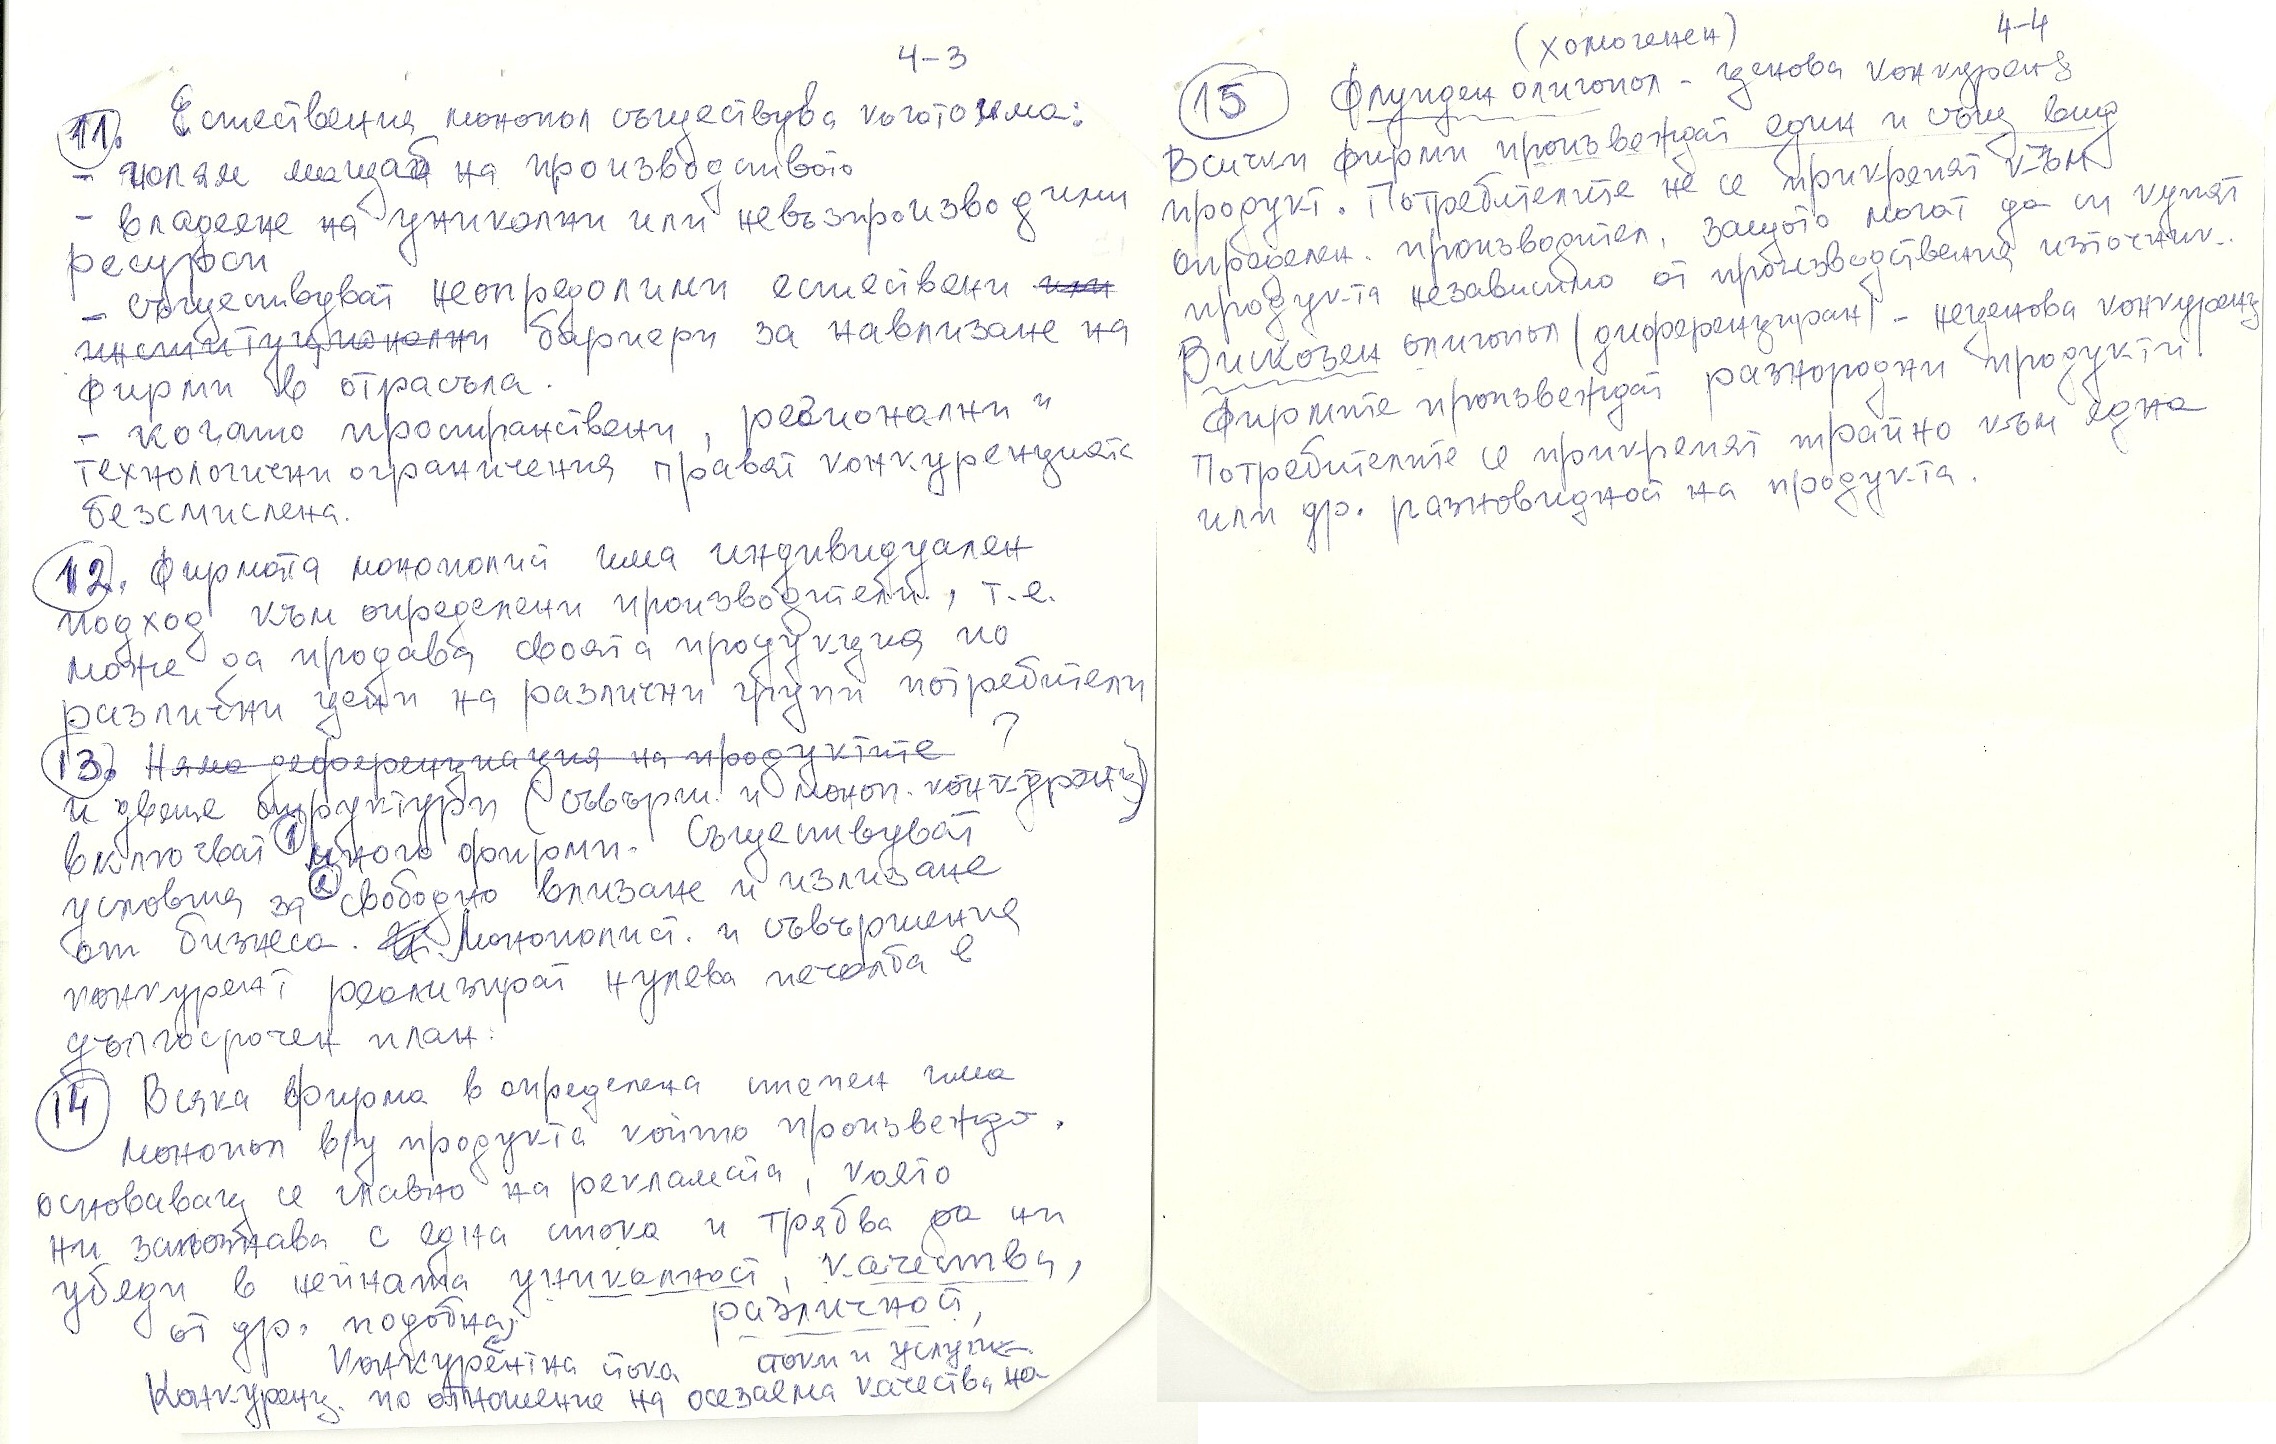 4-3
11. Естествения монопол съществува когато има:
- голям мащаб на производството
- владеене на уникални или невъзпроизводими
ресурси
- съществуват неопредолими естествени или
институционални бариери за навлизане на
фирми в отрасъла.
- когато пространствени, регионални и
технологични ограничения правят конкуренцията
безсмислена.
12. Фирмата монополист има индивидуален
подход към определени производители, т.е.
може да продава своята продукция по
различни цени на различни групи потребители
13. Няма деференциация на продуктите ?
и двете структури (съвърш. и моноп. конкуренц)
включват 1 много фирми. Съществуват
условия за 2 свободно влизане и излизане
от бизнеса. Монополист. и съвършения
конкурент реализират нулева печалба в
дългосрочен план.
14 Всяка фирма в определена степен има
монопол в/у продукта който произвежда,
основаващ се главно на рекламата, която
ни запознава с една стока и трябва да ни
убеди в нейната уникалност, качества,
от др. подобна, различност,
конкурентна стока стоки и услуги
Конкуренц. по отношение на осезаема качества на
4-4
(хомогенен)
15 Флуиден олигопол - ценова конкуренц
Всички фирми произвеждат един и същ вид
продукт. Потребителите не се прикрепят към
определен производител, защото могат да си купят
продукта независимо от производствения източник.
Вискозен олигопол (диференциран) - неценова конкуренц
Фирмите произвеждат разнородни продукти.
Потребителите се прикрепят трайно към една
или др. разновидност на продукта.